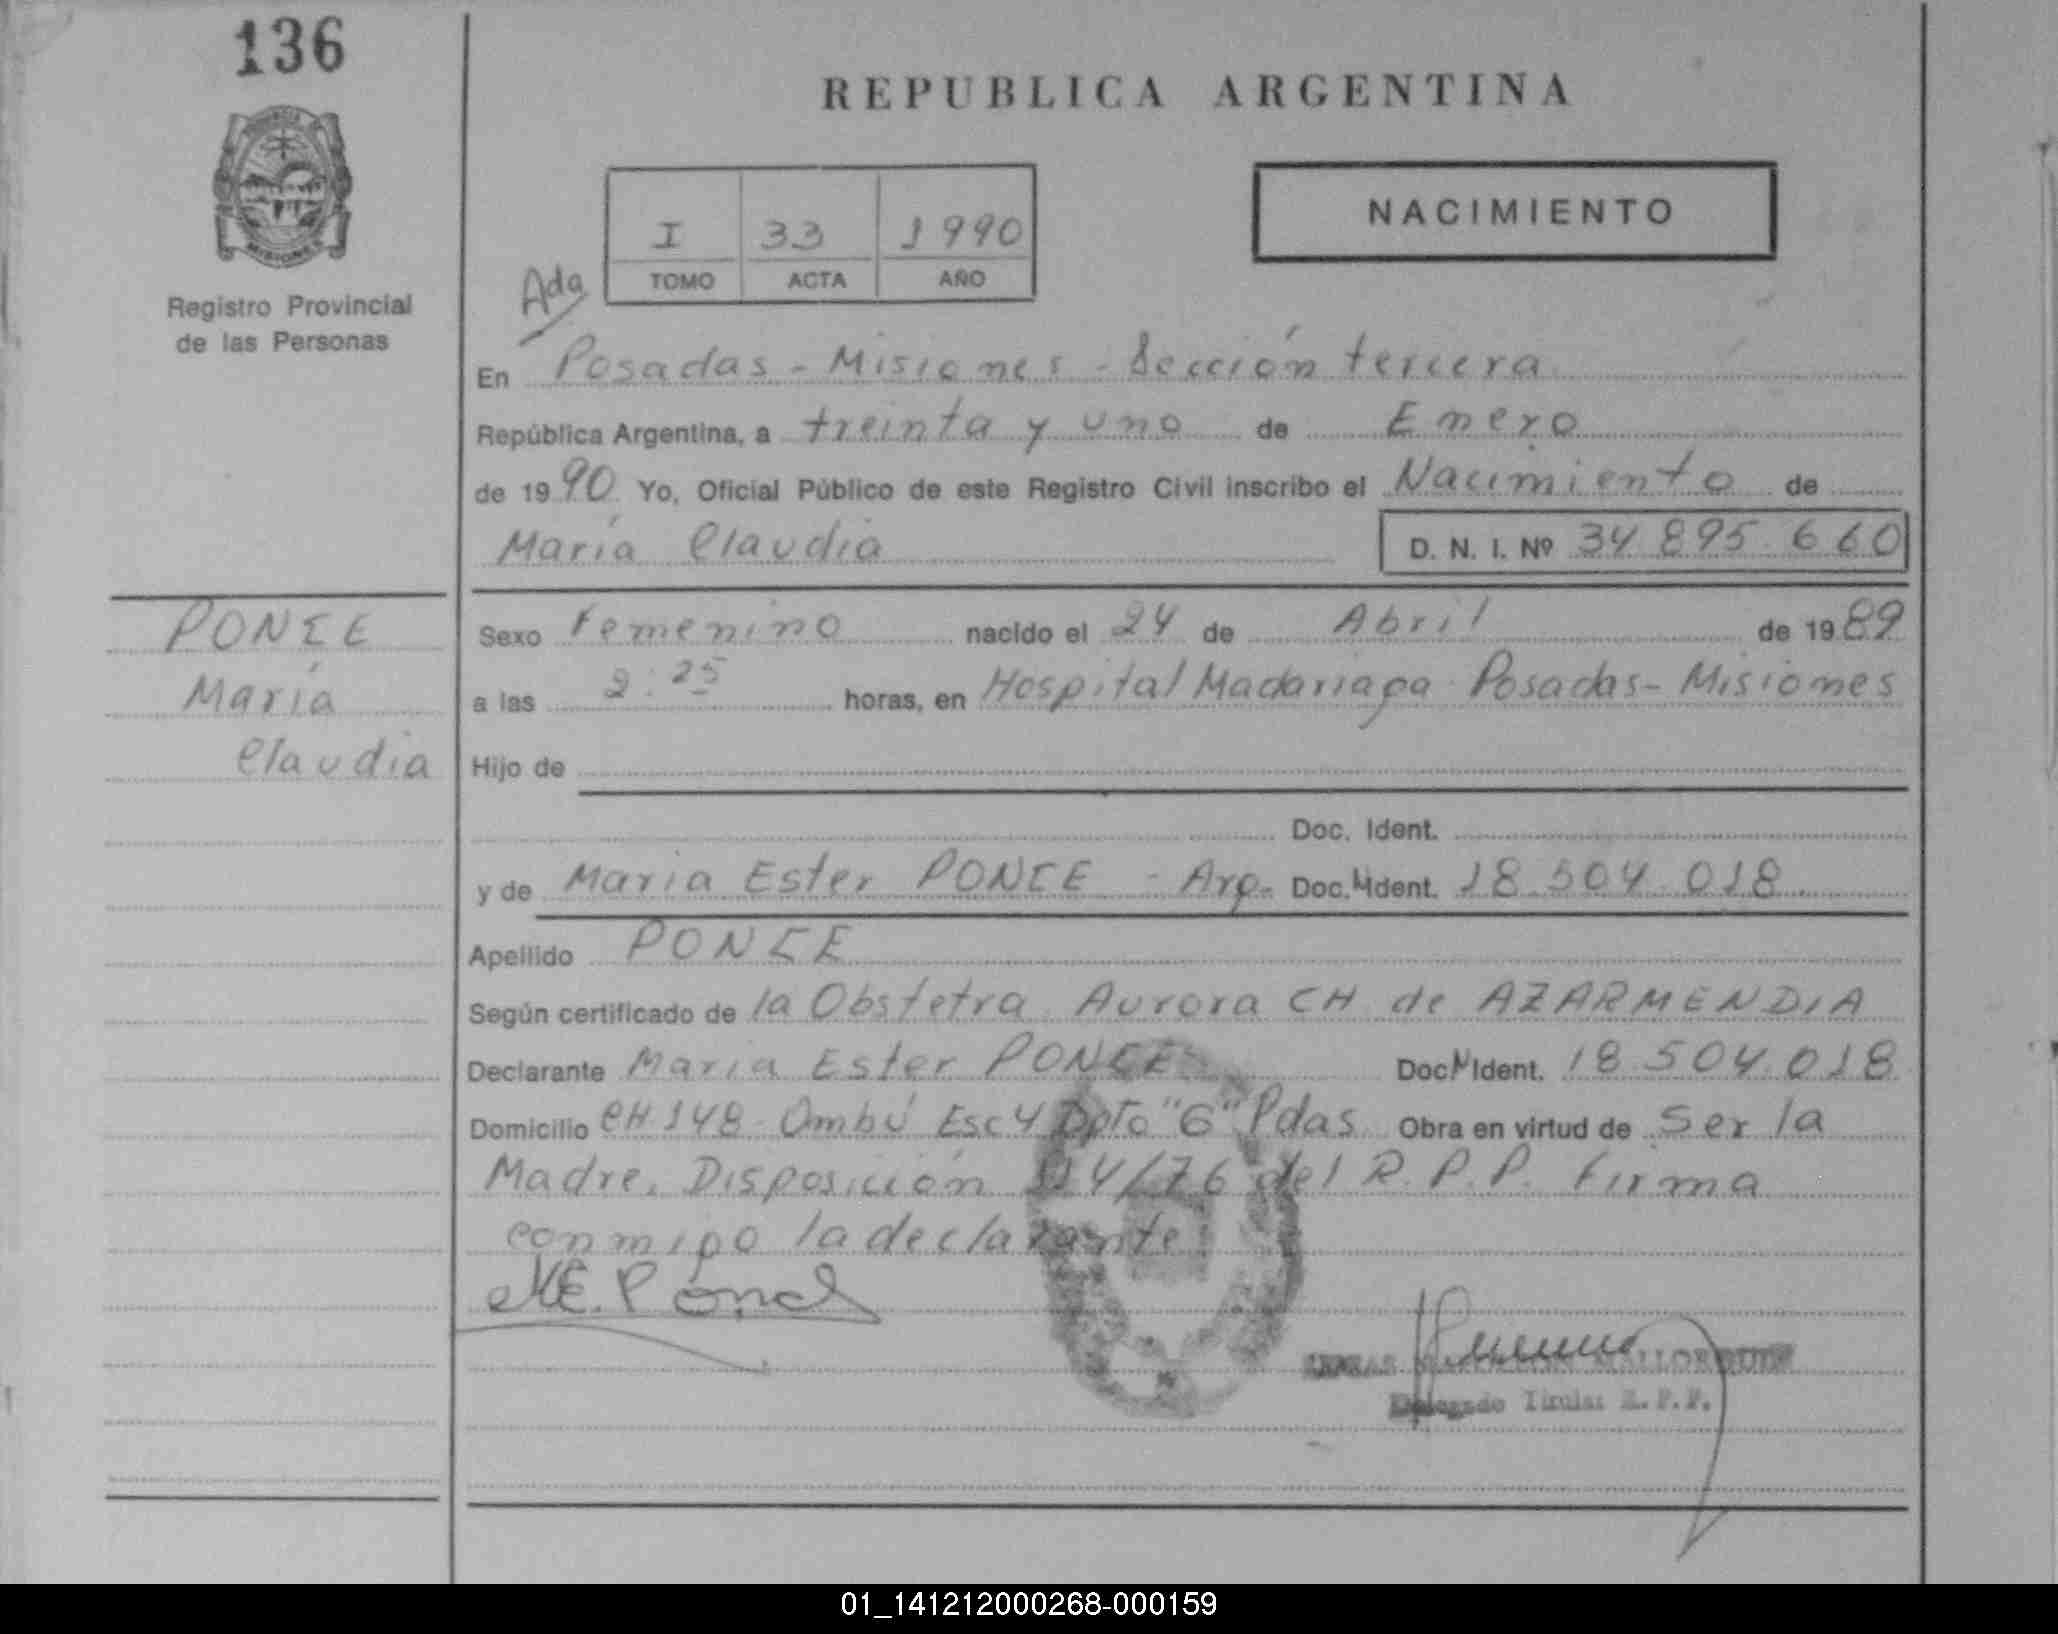 136
REPUBLICA ARGENTINA
NACIMIENTO
I 33 1990
TOMO ACTA AÑO
Ada
MISIONES
Registro Provincial
de las Personas
En Posadas - Misiones - Sección tercera
República Argentina, a treinta y uno de Enero
de 1990 Yo, Oficial Público de este Registro Civil inscribo el Nacimiento de
María Claudia D. N. I. Nº 34 895.660
PONCE
María
Claudia
Sexo Femenino nacido el 24 de Abril de 1989
a las 2:25 horas, en Hospital Madariaga Posadas - Misiones
Hijo de
Doc. Ident.
y de Maria Ester PONCE - Arg. Doc. Ident. 18.504.018
Apellido PONCE
Según certificado de la Obstetra Aurora CH de AZARMENDIA
Declarante Maria Ester PONCE Doc. Ident. 18.504.018
Domicilio CH 148 - Ombú Esc 4 Dpto "G" Pdas Obra en virtud de Ser la
Madre. Disposición /76 del R.P.P. Firma
conmigo la declarante
M.E. Ponce
Delegado Titular R.P.P.
01_141212000268-000159